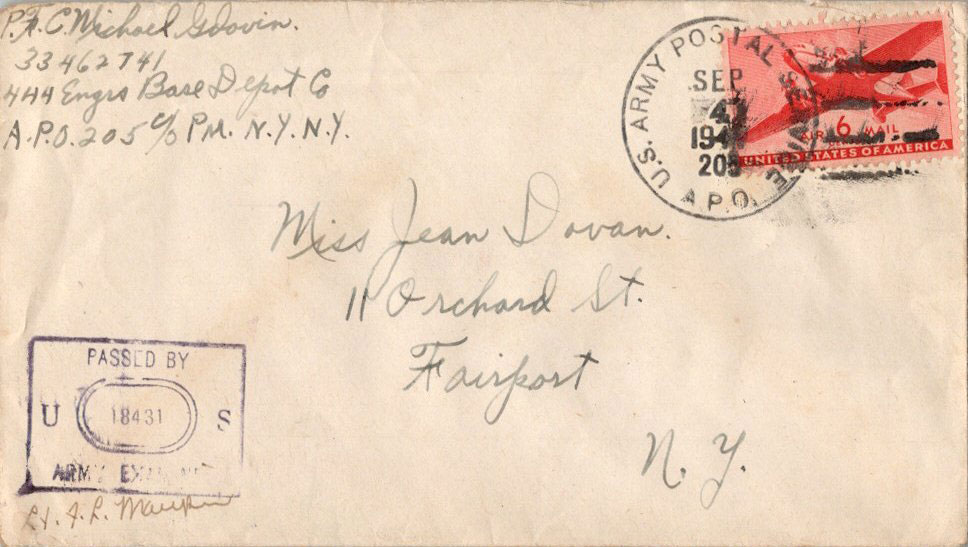 P.F.C. Michael Gdovin.
33462741
444 Engrs Base Depot Co
A.P.O. 205 c/o PM. N.Y. N.Y.
U.S. ARMY POSTAL SERVICE
SEP
4
205
A.P.O.
AIR 6¢ MAIL
UNITED STATES OF AMERICA
Miss Jean Dovan.
11 Orchard St.
Fairport
N.Y.
PASSED BY
U 18431 S
ARMY EXAMINER
Lt. J. L.